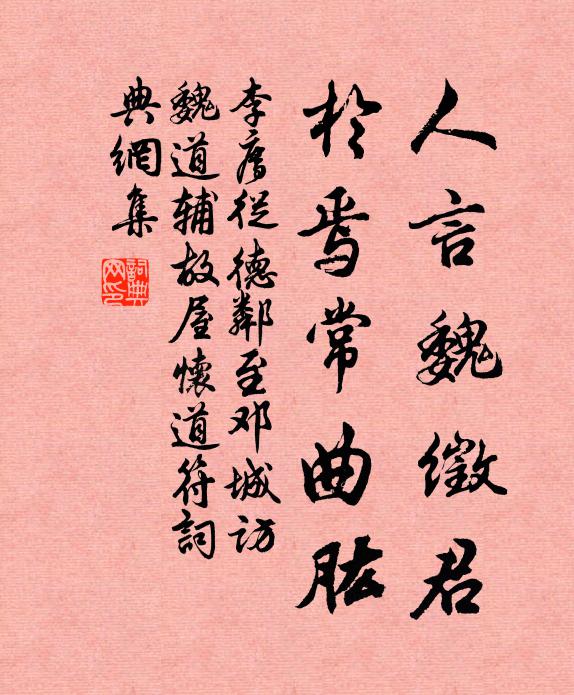 人言魏徵君
於焉常曲肱
李廌從德鄰至邓城訪
魏道辅故屋懷道符詞
典網集
詞典网印